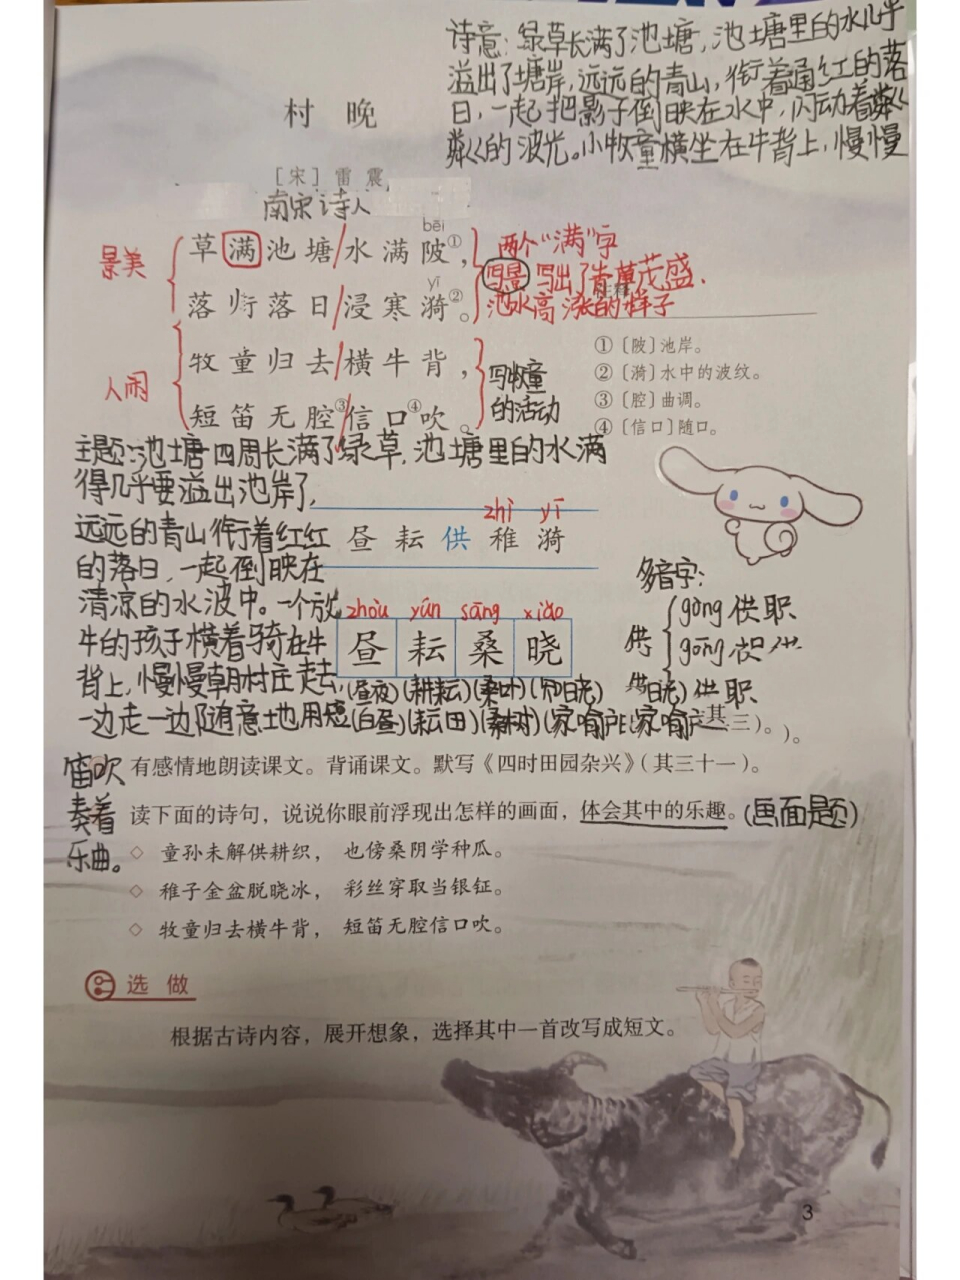 诗意：绿草长满了池塘，池塘里的水几乎
溢出了塘岸，远远的青山，衔着通红的落
日，一起把影子倒映在水中，闪动着粼
粼的波光。小牧童横坐在牛背上，慢慢
村晚
［宋］雷震
南宋诗人
bēi
草满池塘/水满陂①，
两个“满”字
景美
写景 写出了青草茂盛.
池水高涨的样子
yī
落衔落日/浸寒漪②。
牧童归去/横牛背，
写牧童
的活动
人闲
短笛无腔③/信口④吹。
①〔陂〕池岸。
②〔漪〕水中的波纹。
③〔腔〕曲调。
④〔信口〕随口。
主题：池塘四周长满了绿草，池塘里的水满
得几乎要溢出池岸了，
远远的青山衔着红红
的落日，一起倒映在
清凉的水波中。一个放
牛的孩子横着骑在牛
背上，慢慢朝村庄走去，
一边走一边随意地用短
笛吹
奏着
乐曲。
zhì yī
昼 耘 供 稚 漪
zhòu yún sāng xiǎo
昼 耘 桑 晓
(昼夜)(耕耘)(桑叶)
(白昼)(耘田)(桑树)(家喻户
多音字：
供
gòng 供职
gōng
供职
三）。
有感情地朗读课文。背诵课文。默写《四时田园杂兴》（其三十一）。
读下面的诗句，说说你眼前浮现出怎样的画面，体会其中的乐趣。(画面题)
◇ 童孙未解供耕织，也傍桑阴学种瓜。
◇ 稚子金盆脱晓冰，彩丝穿取当银钲。
◇ 牧童归去横牛背，短笛无腔信口吹。
选做
根据古诗内容，展开想象，选择其中一首改写成短文。
3